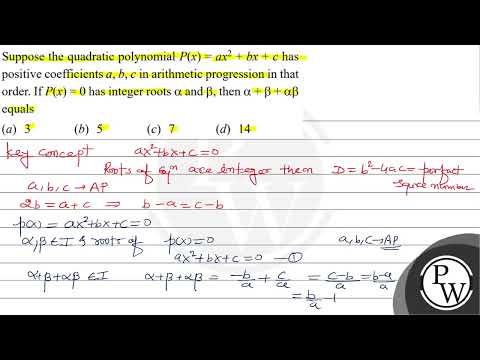 Suppose the quadratic polynomial P(x) = ax² + bx + c has
positive coefficients a, b, c in arithmetic progression in that
order. If P(x) = 0 has integer roots α and β, then α + β + αβ
equals
(a) 3 (b) 5 (c) 7 (d) 14
Key concept ax²+bx+c=0
Roots of eqⁿ are integer then D = b²-4ac = perfect
square number
a,b,c → AP
2b = a+c ⇒ b-a = c-b
p(x) = ax²+bx+c=0
α,β ∈ I & roots of p(x)=0 a,b,c → AP
ax²+bx+c=0 —①
α+β+αβ ∈ I α+β+αβ = -b/a + c/a = c-b/a = b-a/a
= b/a - 1
P
W